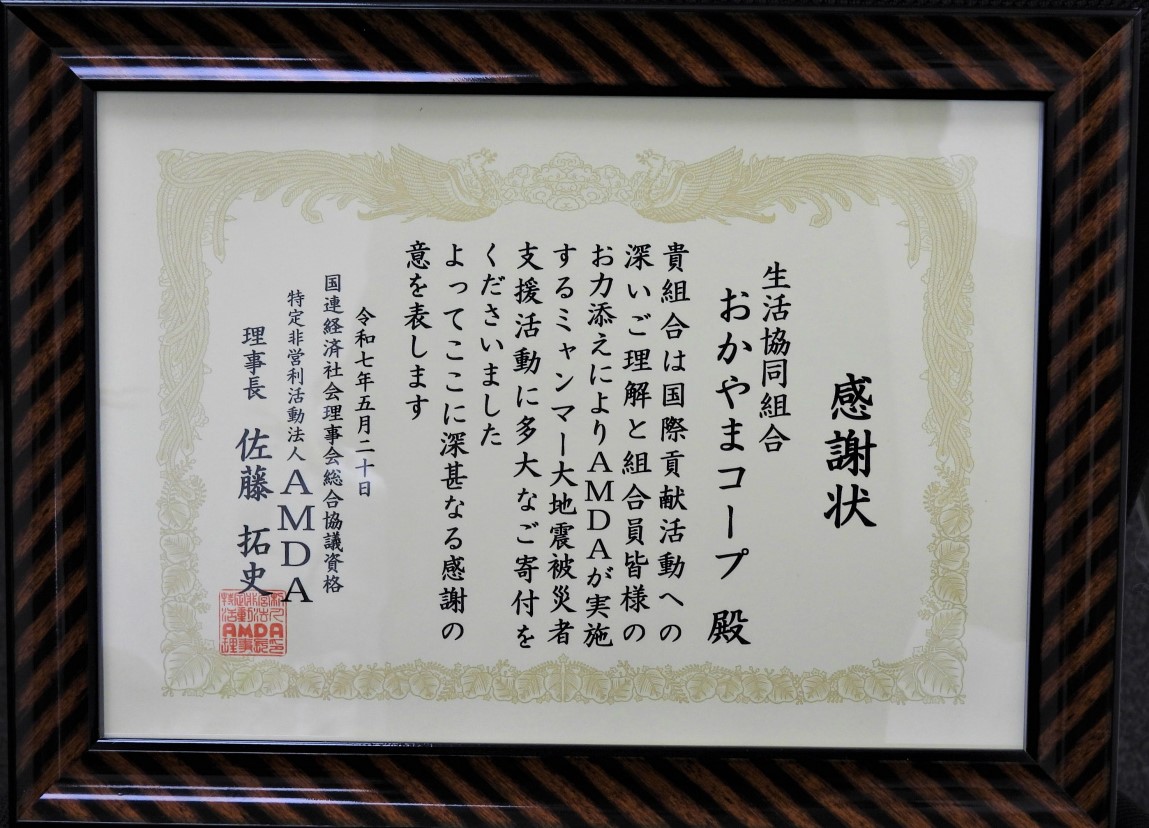 感謝状
生活協同組合
おかやまコープ 殿
貴組合は国際貢献活動への
深いご理解と組合員皆様の
お力添えによりAMDAが実施
するミャンマー大地震被災者
支援活動に多大なご寄付を
くださいました
よってここに深甚なる感謝の
意を表します
令和七年五月二十日
国連経済社会理事会総合協議資格
特定非営利活動法人 AMDA
理事長 佐藤 拓史
AMDA